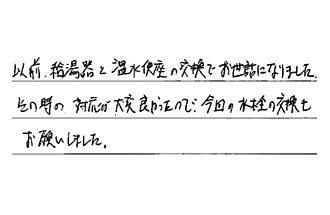 以前、給湯器と温水便座の交換でお世話になりました。
その時の対応が大変良かったので、今回の水栓の交換も
お願いしました。